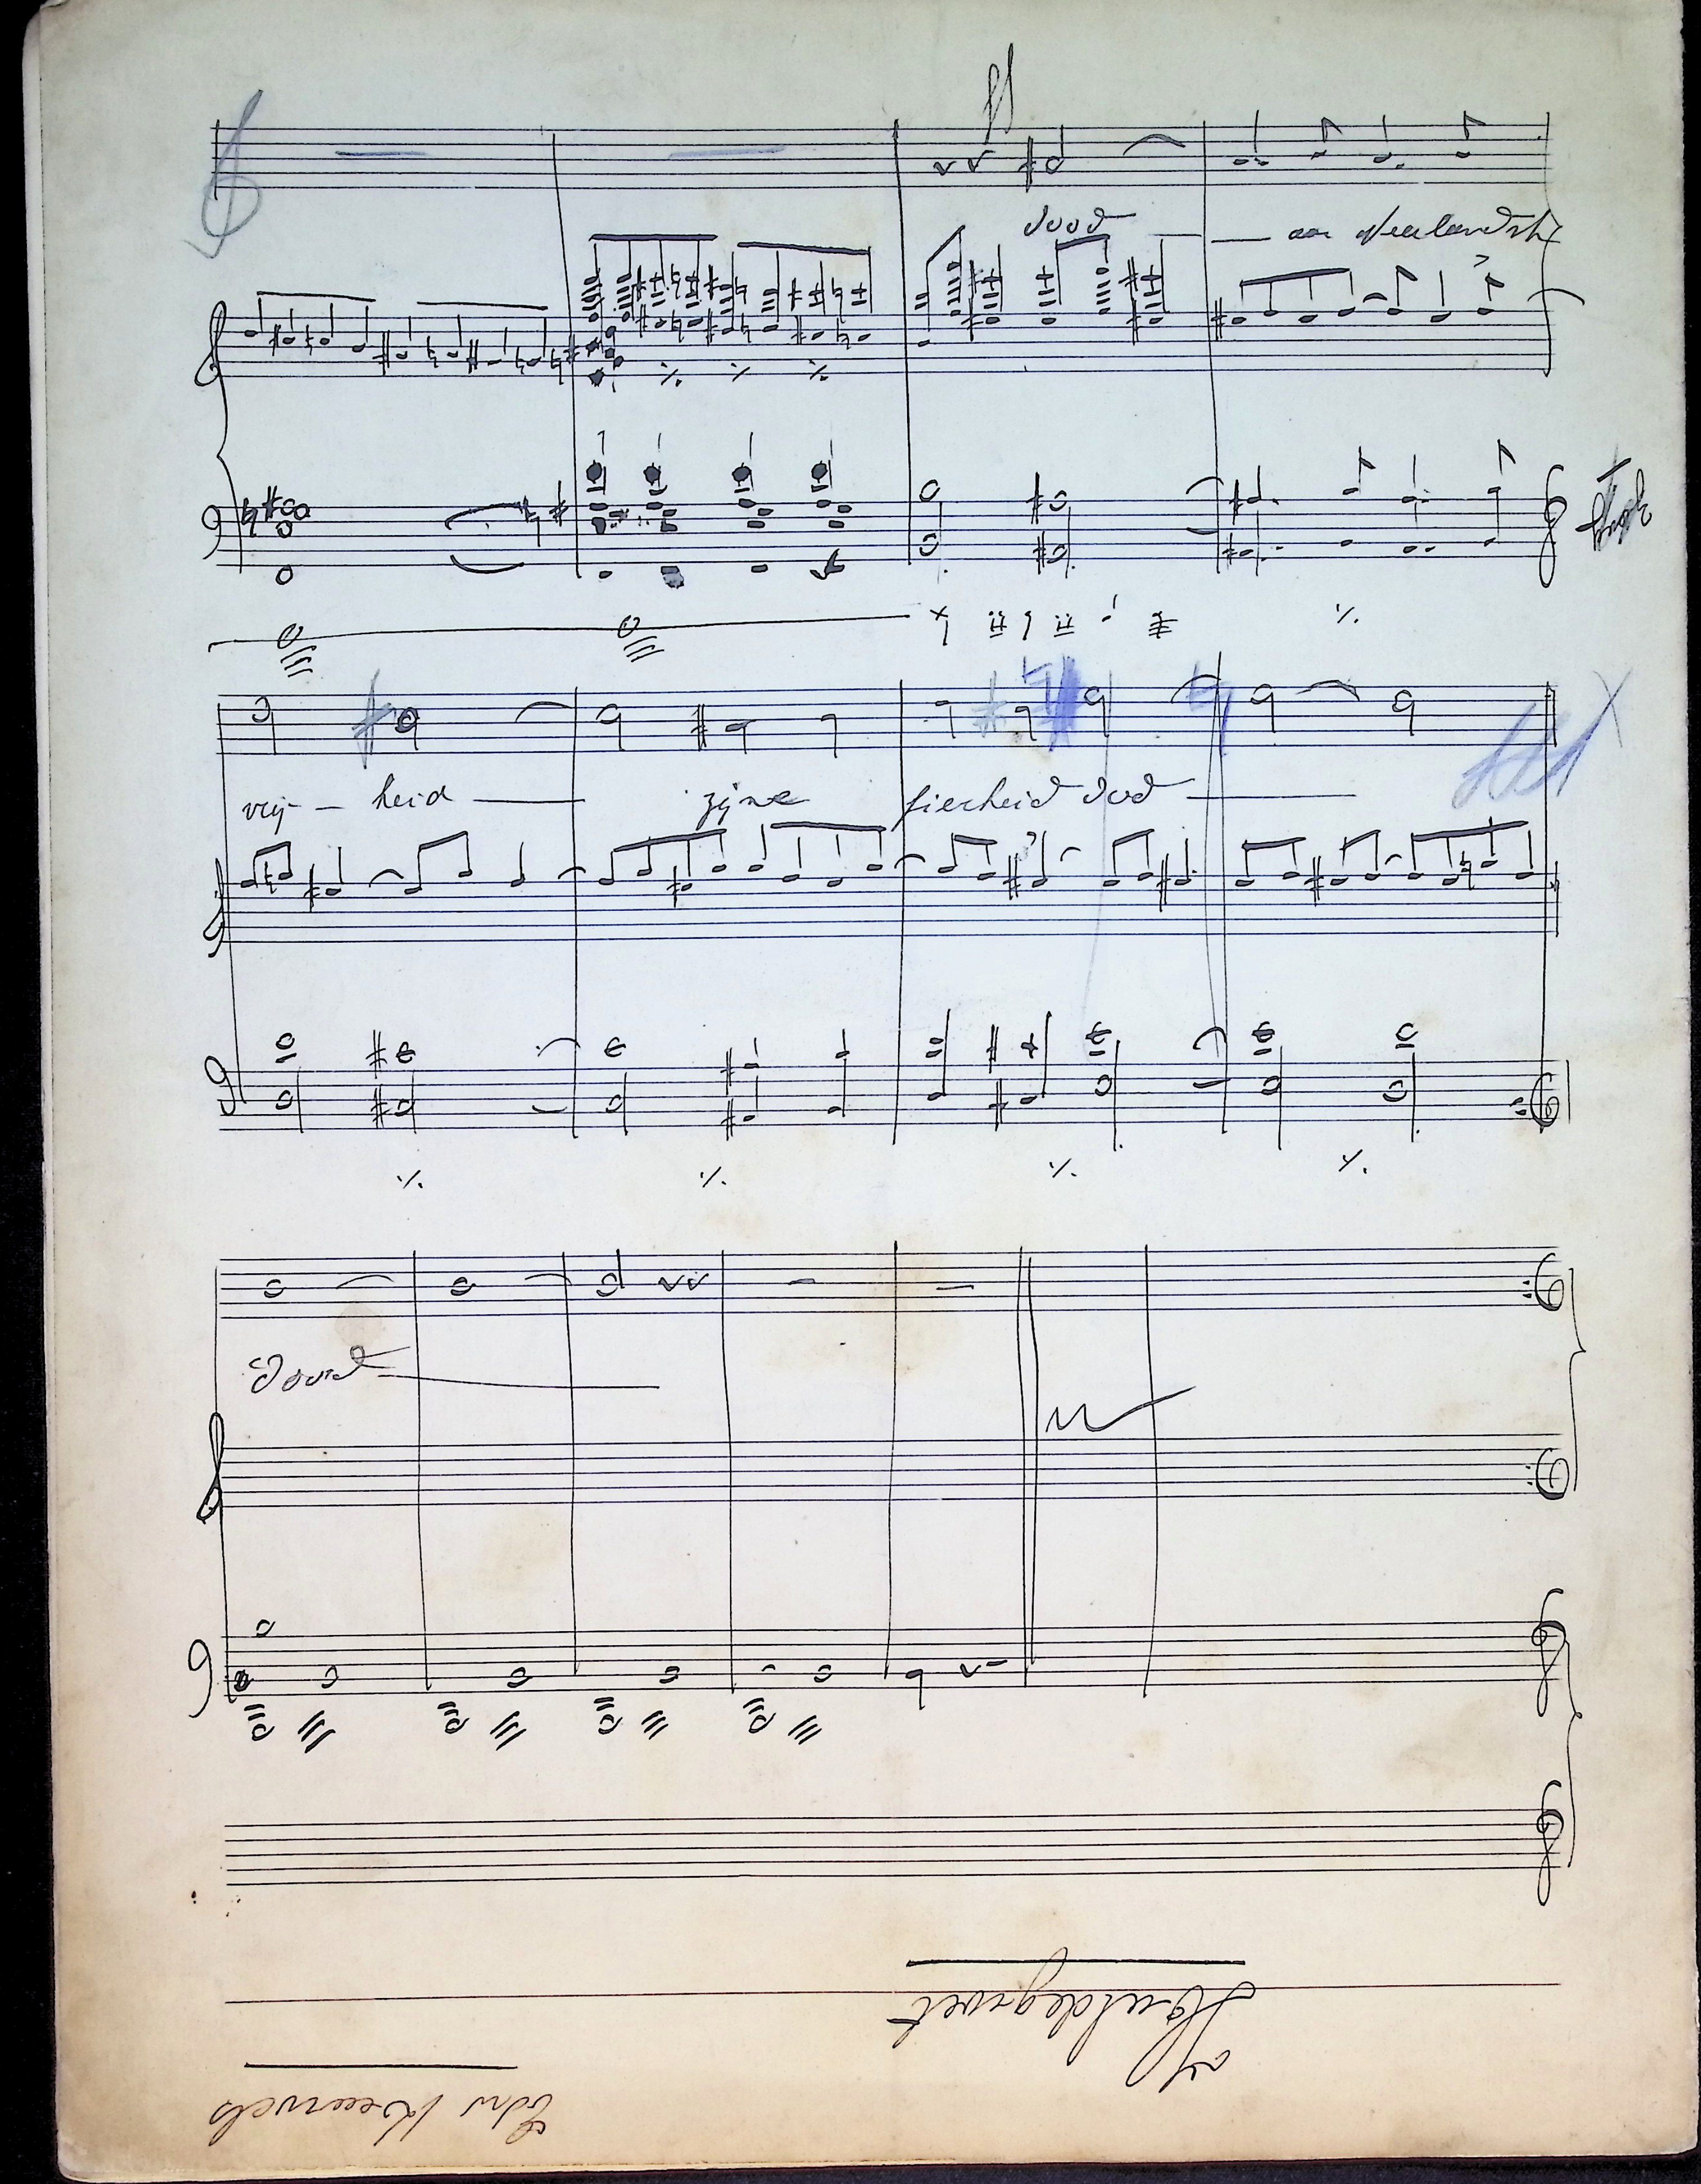 ff
dood — — aan Neerlandsch
vrij — heid — zijne fierheid dood —
dood —
Huldegroet
Edw Keurvels